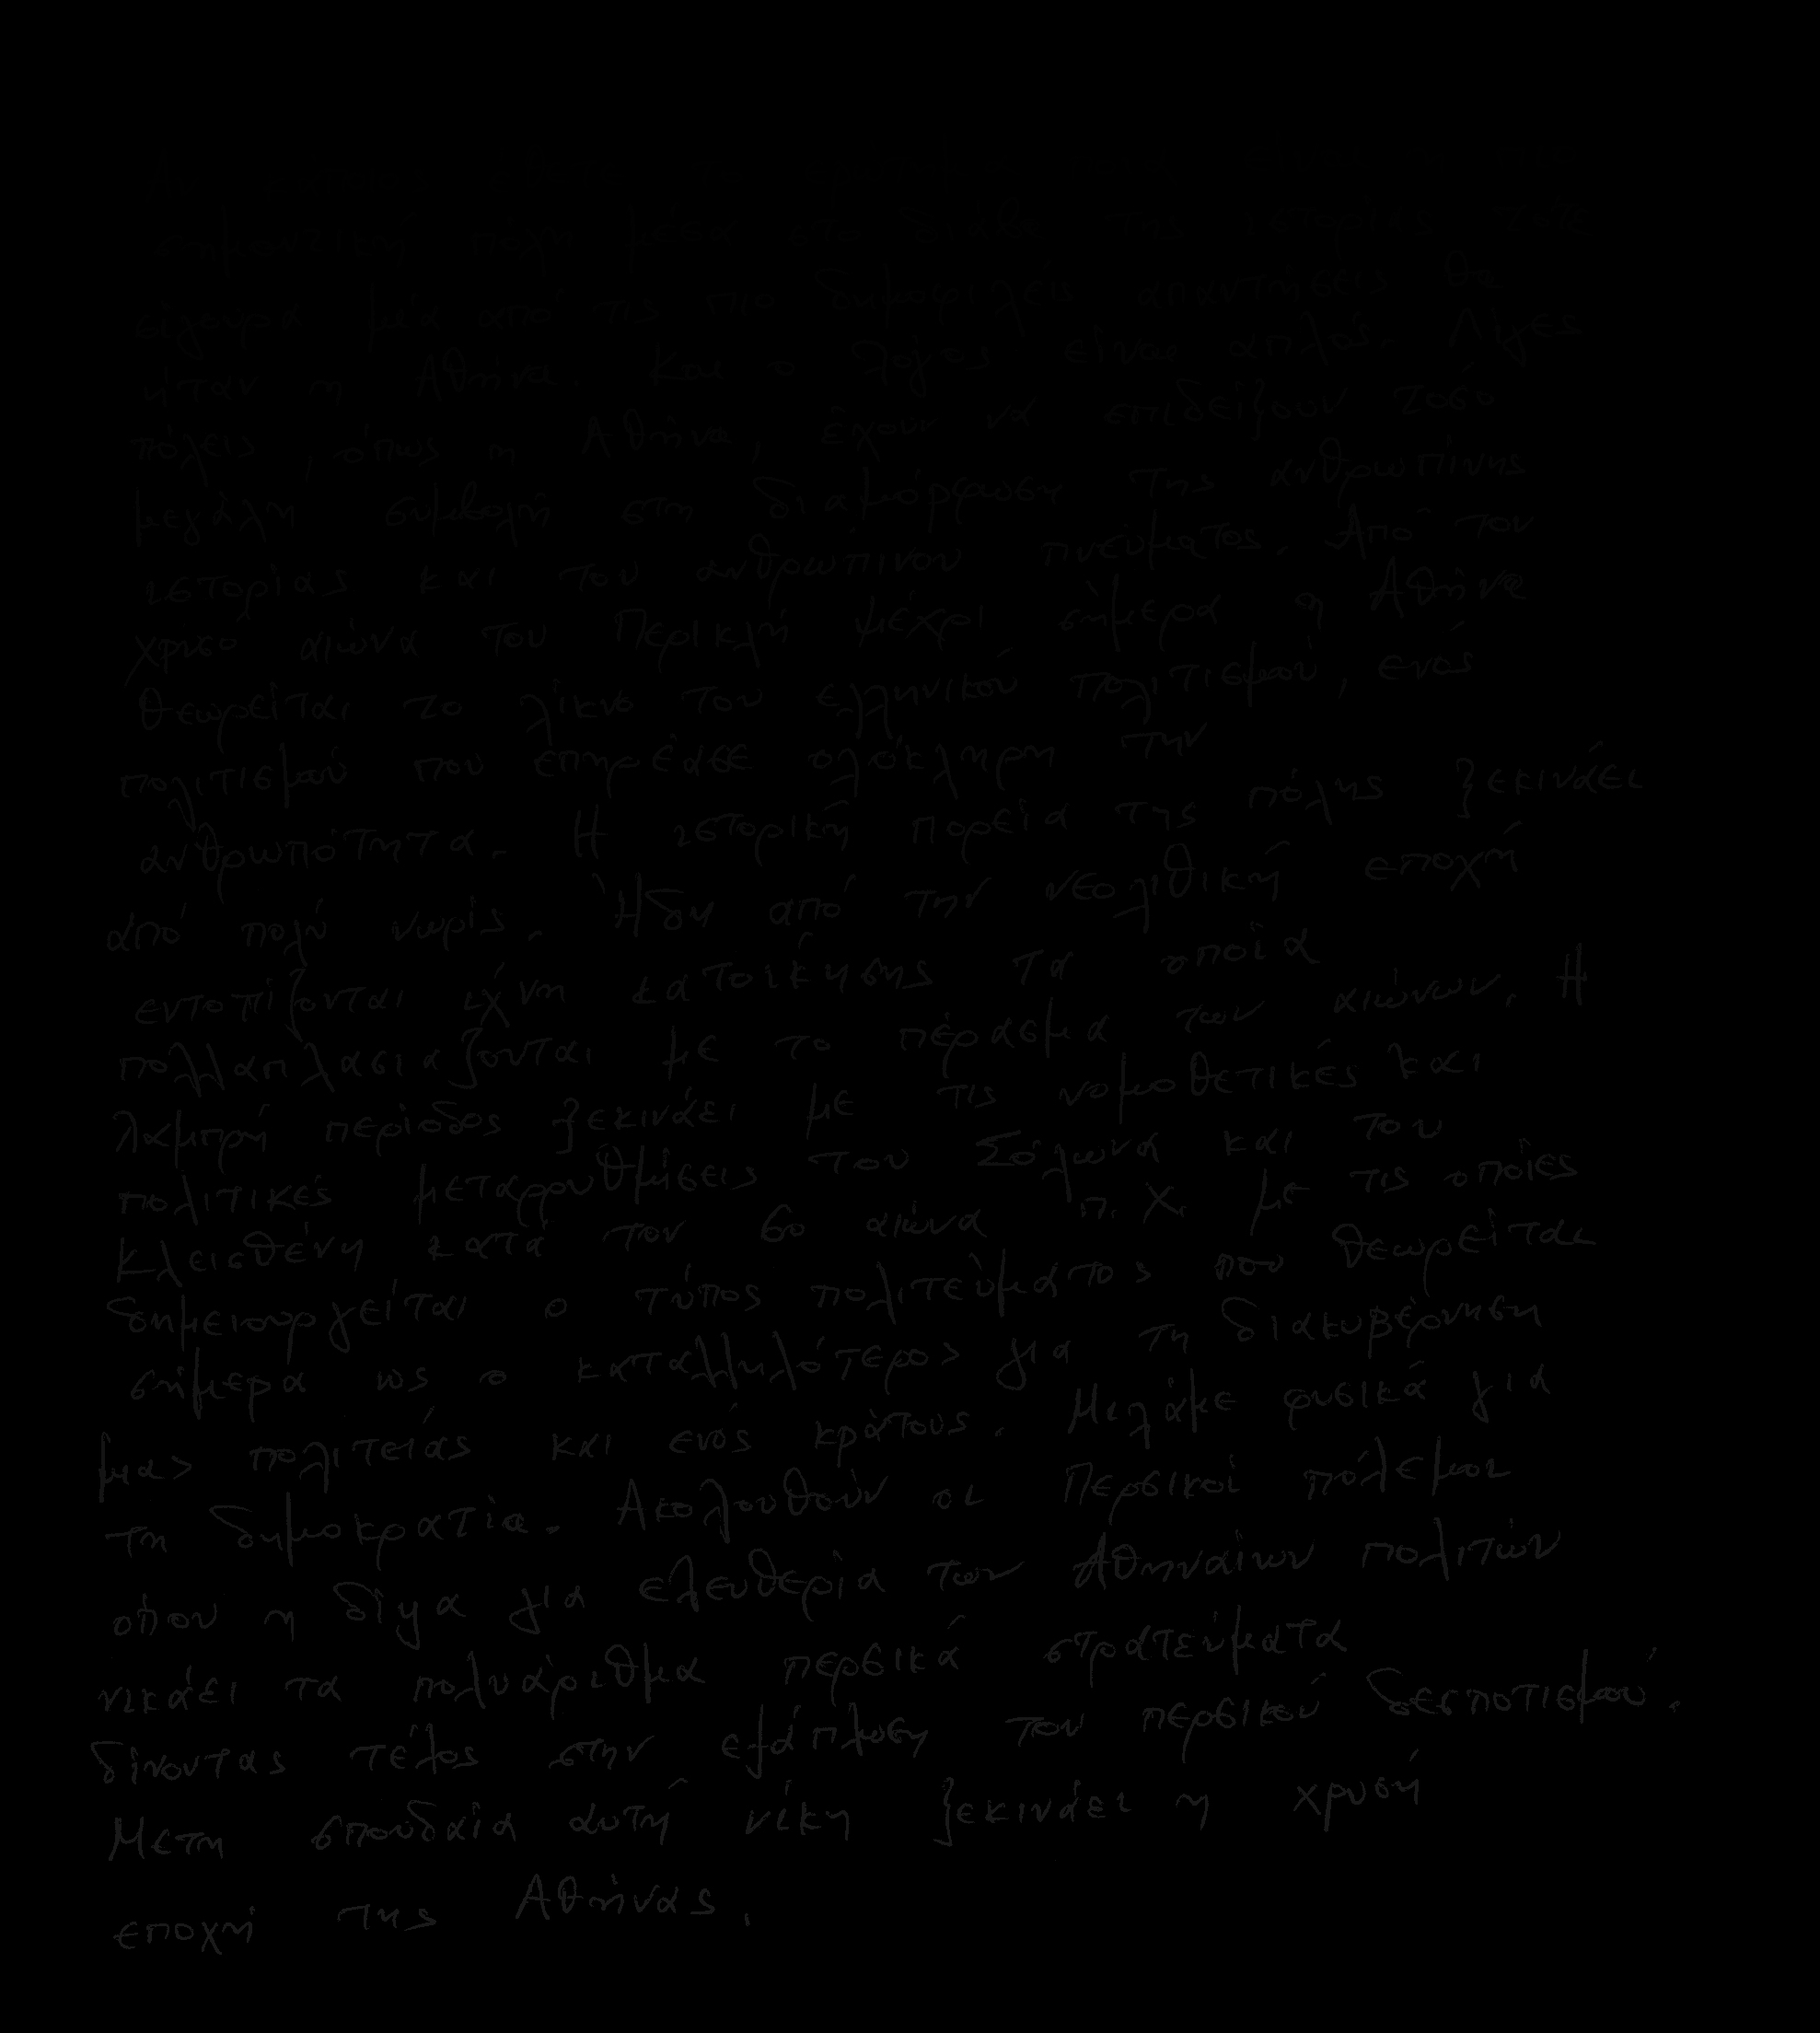 σημαντική πόλη μέσα στο διάβα της ιστορίας τότε
σίγουρα μία από τις πιο δημοφιλείς απαντήσεις θα
ήταν η Αθήνα. Και ο λόγος είναι απλός. Λίγες
πόλεις, όπως η Αθήνα, έχουν να επιδείξουν τόσο
μεγάλη συμβολή στη διαμόρφωση της ανθρωπίνης
ιστορίας και του ανθρώπινου πνεύματος. Από τον
χρυσό αιώνα του Περικλή μέχρι σήμερα η Αθήνα
θεωρείται το λίκνο του ελληνικού πολιτισμού, ενός
πολιτισμού που επηρέασε ολόκληρη την
ανθρωπότητα. Η ιστορική πορεία της πόλης ξεκινάει
από πολύ νωρίς. Ήδη από την νεολιθική εποχή
εντοπίζονται ιχνη κατοίκησης τα οποία
πολλαπλασιαζονται με το πέρασμα των αιώνων. Η
λαμπρή περίοδος ξεκινάει με τις νομοθετικές και
πολιτικές μεταρρυθμίσεις του Σόλωνα και του
Κλεισθένη κατά τον 6ο αιώνα π.Χ. με τις οποίες
δημειουργείται ο τύπος πολιτεύματος που θεωρείται
σήμερα ως ο καταλληλότερος για τη διακυβέρνηση
μιας πολιτείας και ενός κράτους. Μιλάμε φυσικά για
τη δημοκρατία. Ακολουθούν οι Περσικοί πόλεμοι
όπου η δίψα για ελευθερία των Αθηναίων πολιτών
νικάει τα πολυάριθμα περσικά στρατεύματα
δίνοντας τέλος στην εξάπλωση του περσικού δεσποτισμού.
Μετη σπουδαία αυτή νίκη ξεκινάει η χρυσή
εποχή της Αθήνας.